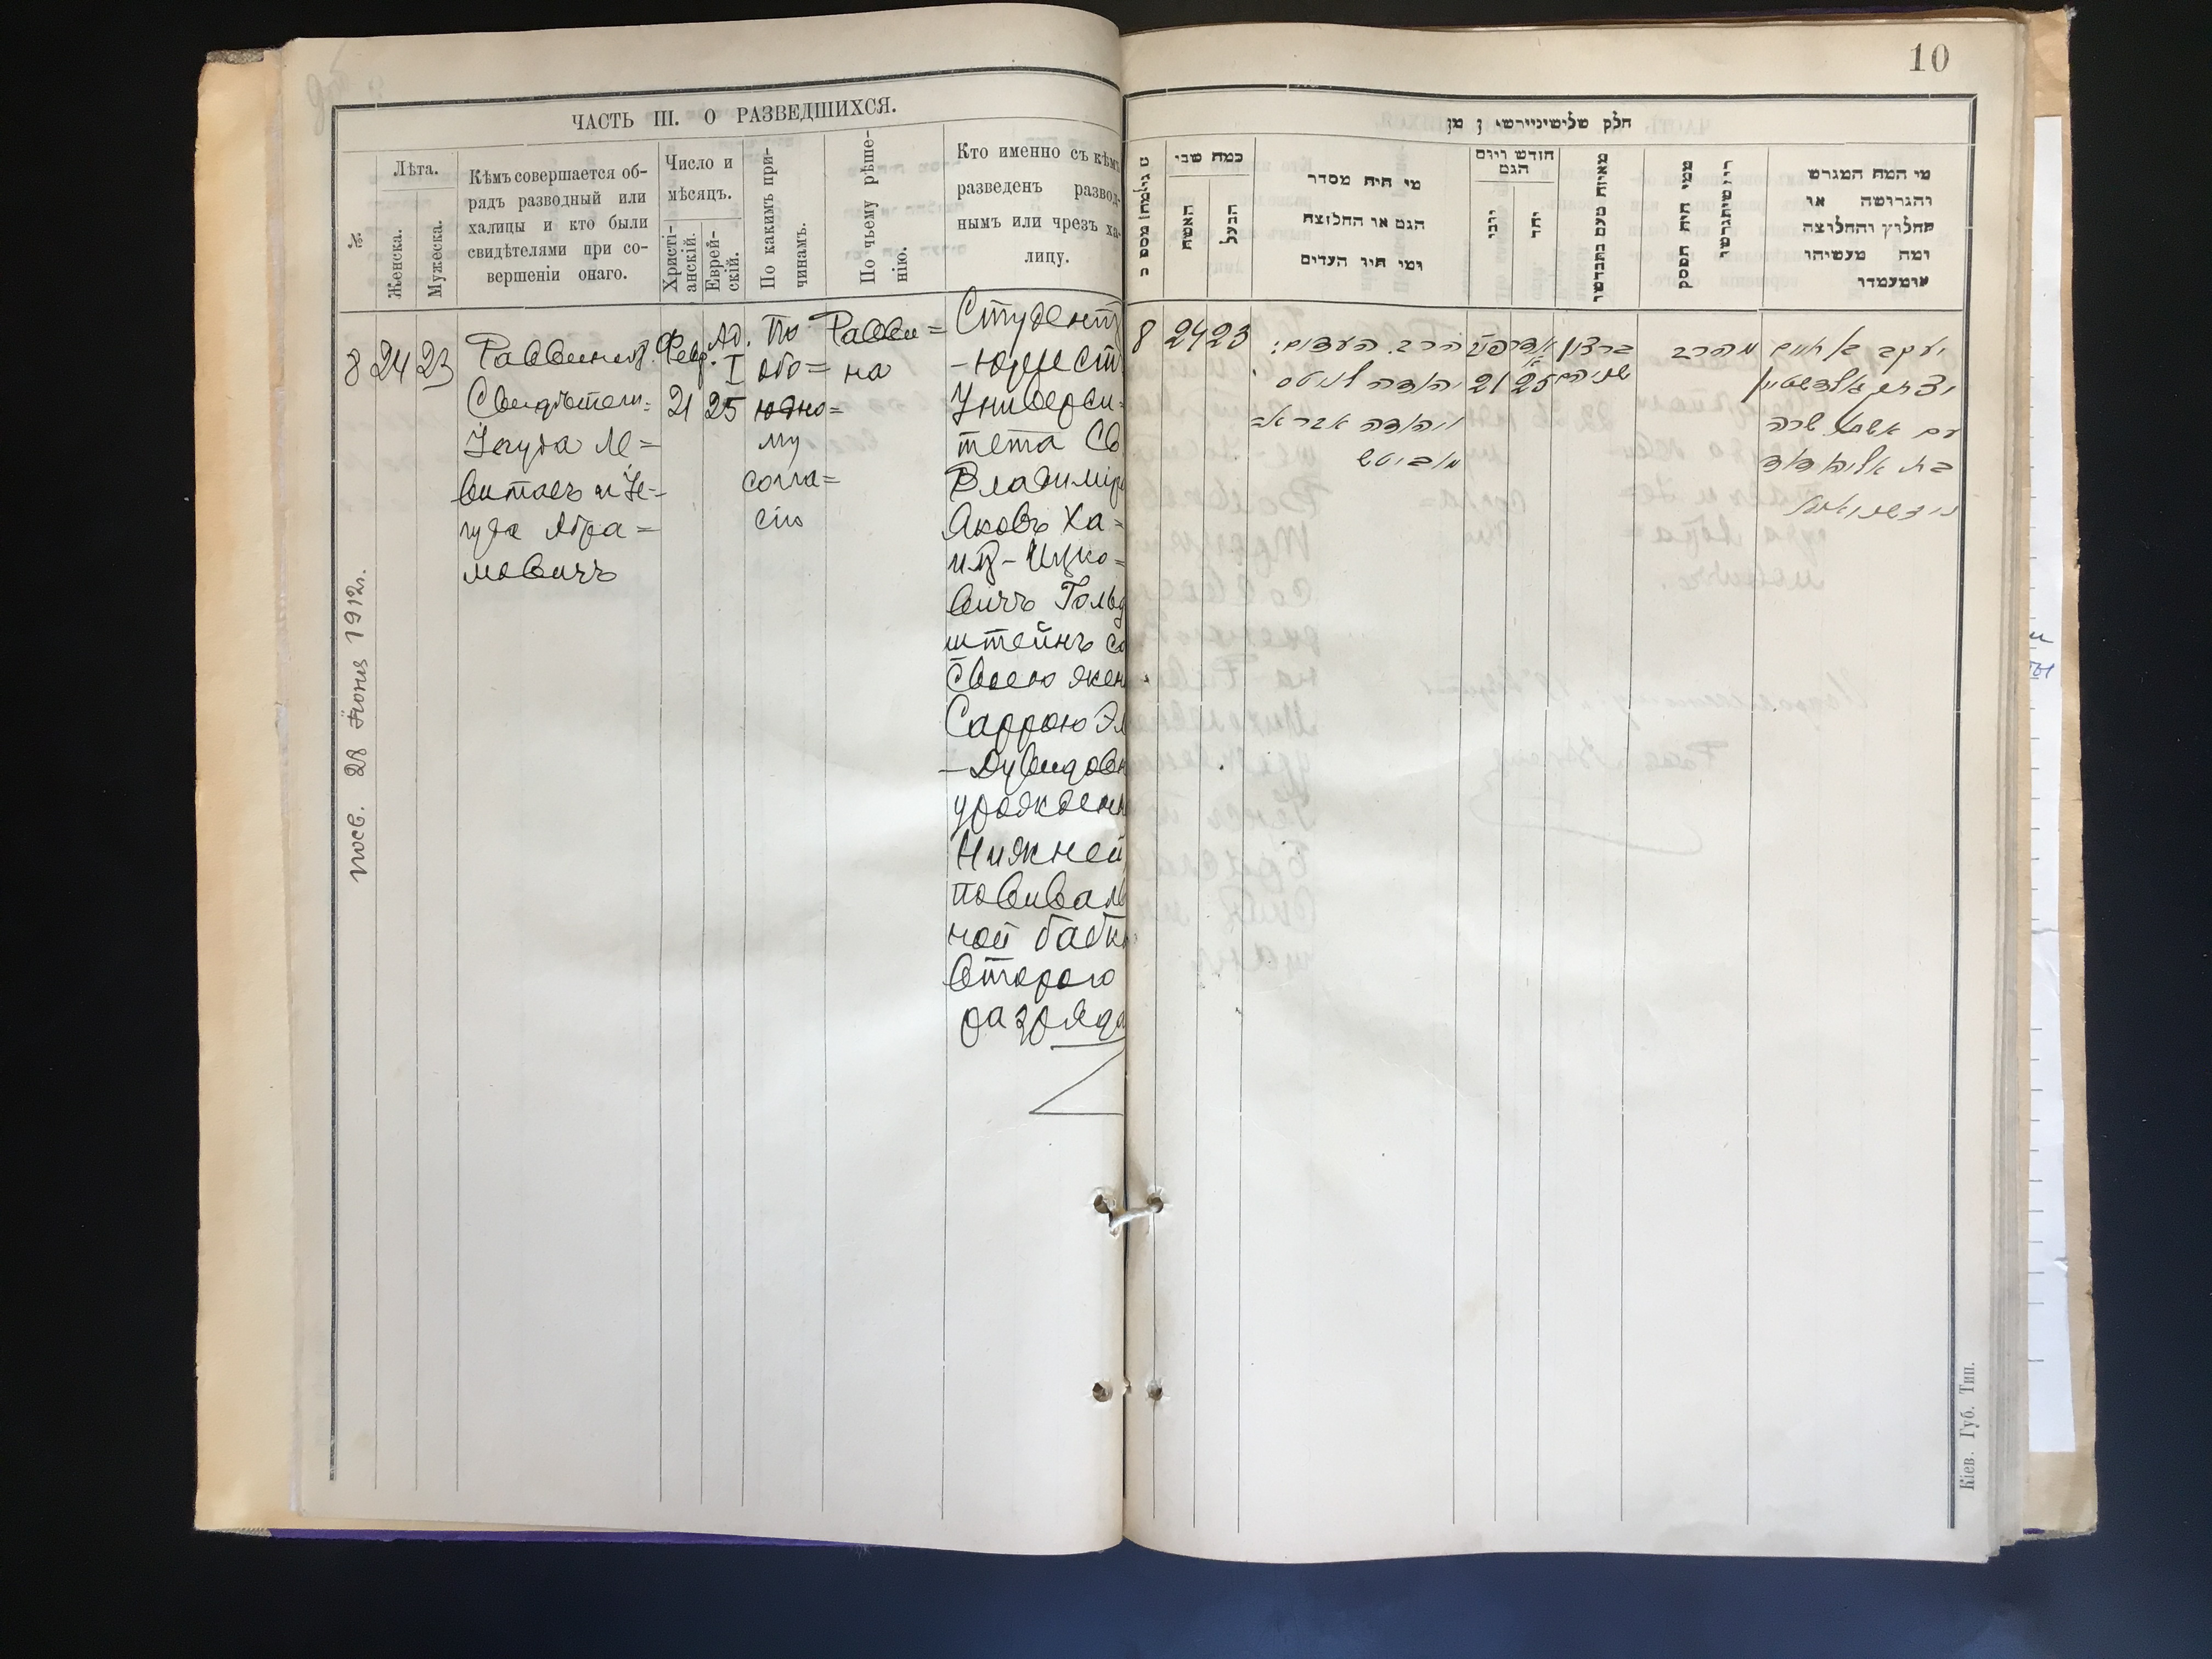 10
ЧАСТЬ III. О РАЗВЕДШИХСЯ.
№.
Лѣта.
Женска.
Мужеска.
Кѣмъ совершается об-
рядъ разводный или
халицы и кто были
свидѣтелями при со-
вершеніи онаго.
Число и
мѣсяцъ.
Христі-
анскій.
Еврей-
скій.
По какимъ при-
чинамъ.
По чьему рѣше-
нію.
Кто именно съ кѣмъ
разведенъ развод-
нымъ или чрезъ ха-
лицу.
8
24
23
Раввиномъ.
Свидѣтели:
Іегуда Ле-
витасъ и Іе-
гуда Абра-
мовичъ
Февр.
21
Ад.
I
25
По
обо=
юдно=
му
согла=
сію
Равви=
на
Студентъ
-юристъ
Универси=
тета Св
Владимір
Яковъ Ха=
имъ-Ицко=
вичъ Гольд
штейнъ со
своею жен
Саррою Эл
-Дувидовн
урожденн
Нижней
повиваль
ной бабк
второго
разряда
посв. 28 Іюня 1912г.
חלק שלישי
כמה שני
האשה
הבעל
מי היה מסדר
הגט או החלוצה
ומי היו העדים
חודש ויום
הגט
מאיזה טעם נתגרשו
ממי היה הפסק
מי המה המגרש
והגרושה או
החולץ והחלוצה
ומה מעשיהו
ומעמדו
8
24
23
הרב. העדים:
יהודה לויטס
ויהודה אברא-
מוביטש
21
אדר
א
25
ברצון
שניהם
מהרב
יעקב חיים
יצחק גאלדשטיין
עם אשתו שרה
בת
Кіев. Губ. Тип.